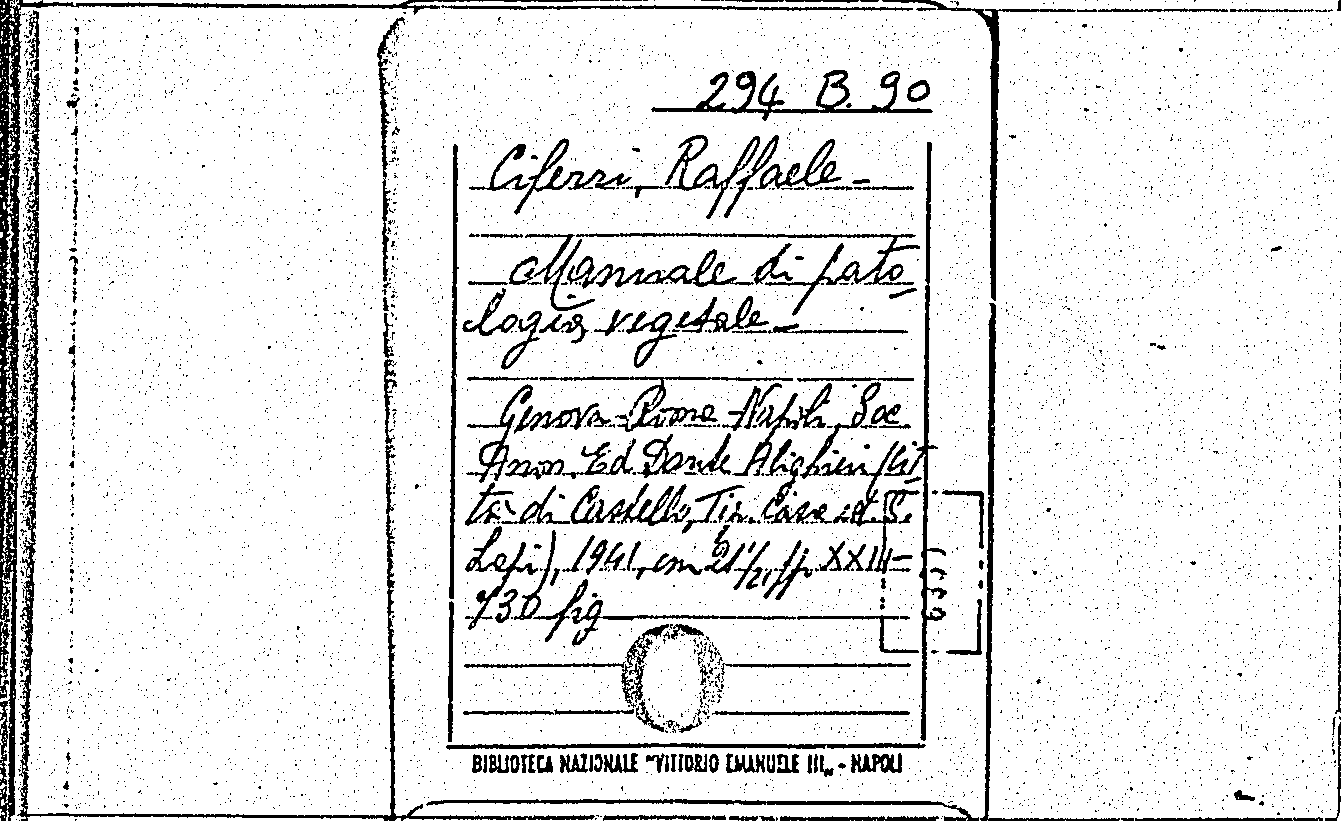 294 B. 90
Ciferri, Raffaele -
Manuale di pato
logia vegetale -
Genova - Roma - Napoli, Soc.
Anon. Ed Dante Alighieri (Cit
tà di Castello, Tip. Casa ed. S.
Lapi), 1941, cm 21½, pp. XXIII-
730 fig
BIBLIOTECA NAZIONALE "VITTORIO EMANUELE III„ - NAPOLI